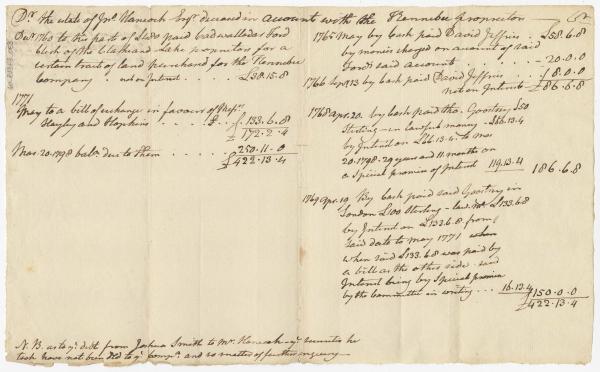 Dr. the estate of Jno. Hancock Esqr. deceased in account with the Kennebec Proprietors Cr.
Decr. 1763 to the part of Sums paid Cadwallader
Clerk of the Clark and Lake proprietors for a
certain tract of land purchased for the Kennebec
Company, not on Interest . . . . £38.15.8
1771
May to a bill of exchange in favour of Messrs.
Hayley and Hopkins . . . . . £. 133.6.8
£ 172.2.4
Mar. 20. 1798 balce. due to them . . . . . 250.11.0
£ 422.13.4
1765 May by cash paid David Jeffries . . £58.6.8
by monies charged on account of said
Lands said account . . . . . - 20.0.0
1766 Sept. 13 by cash paid David Jeffries . . 8.0.0
not on Interest £86.6.8
1768 apr. 20. by cash paid tho. Goostrey £50
Sterling - in lawful money - £66.13.4
by Interest on £66.13.4. to mar
20. 1798. 29 years and 11 months on
a Special promise of Interest 119.13.4 186.6.8
1769 apr. 19. By cash paid said Goostrey in
London £100 Sterling - law. Mo. £133.6.8
by Interest on £133.6.8 from
said date to May 1771 when
when said £133.6.8 was paid by
a bill as the other side - said
Interest being by Special promise
by the Committee in writing . . . 16.13.4 £150.0.0
£422.13.4
N. B. as to ye. debt from Joshua Smith to Mr. Hancock ye. securities he
took have not been Dld to ye. compy. and so matter of further inquiry -